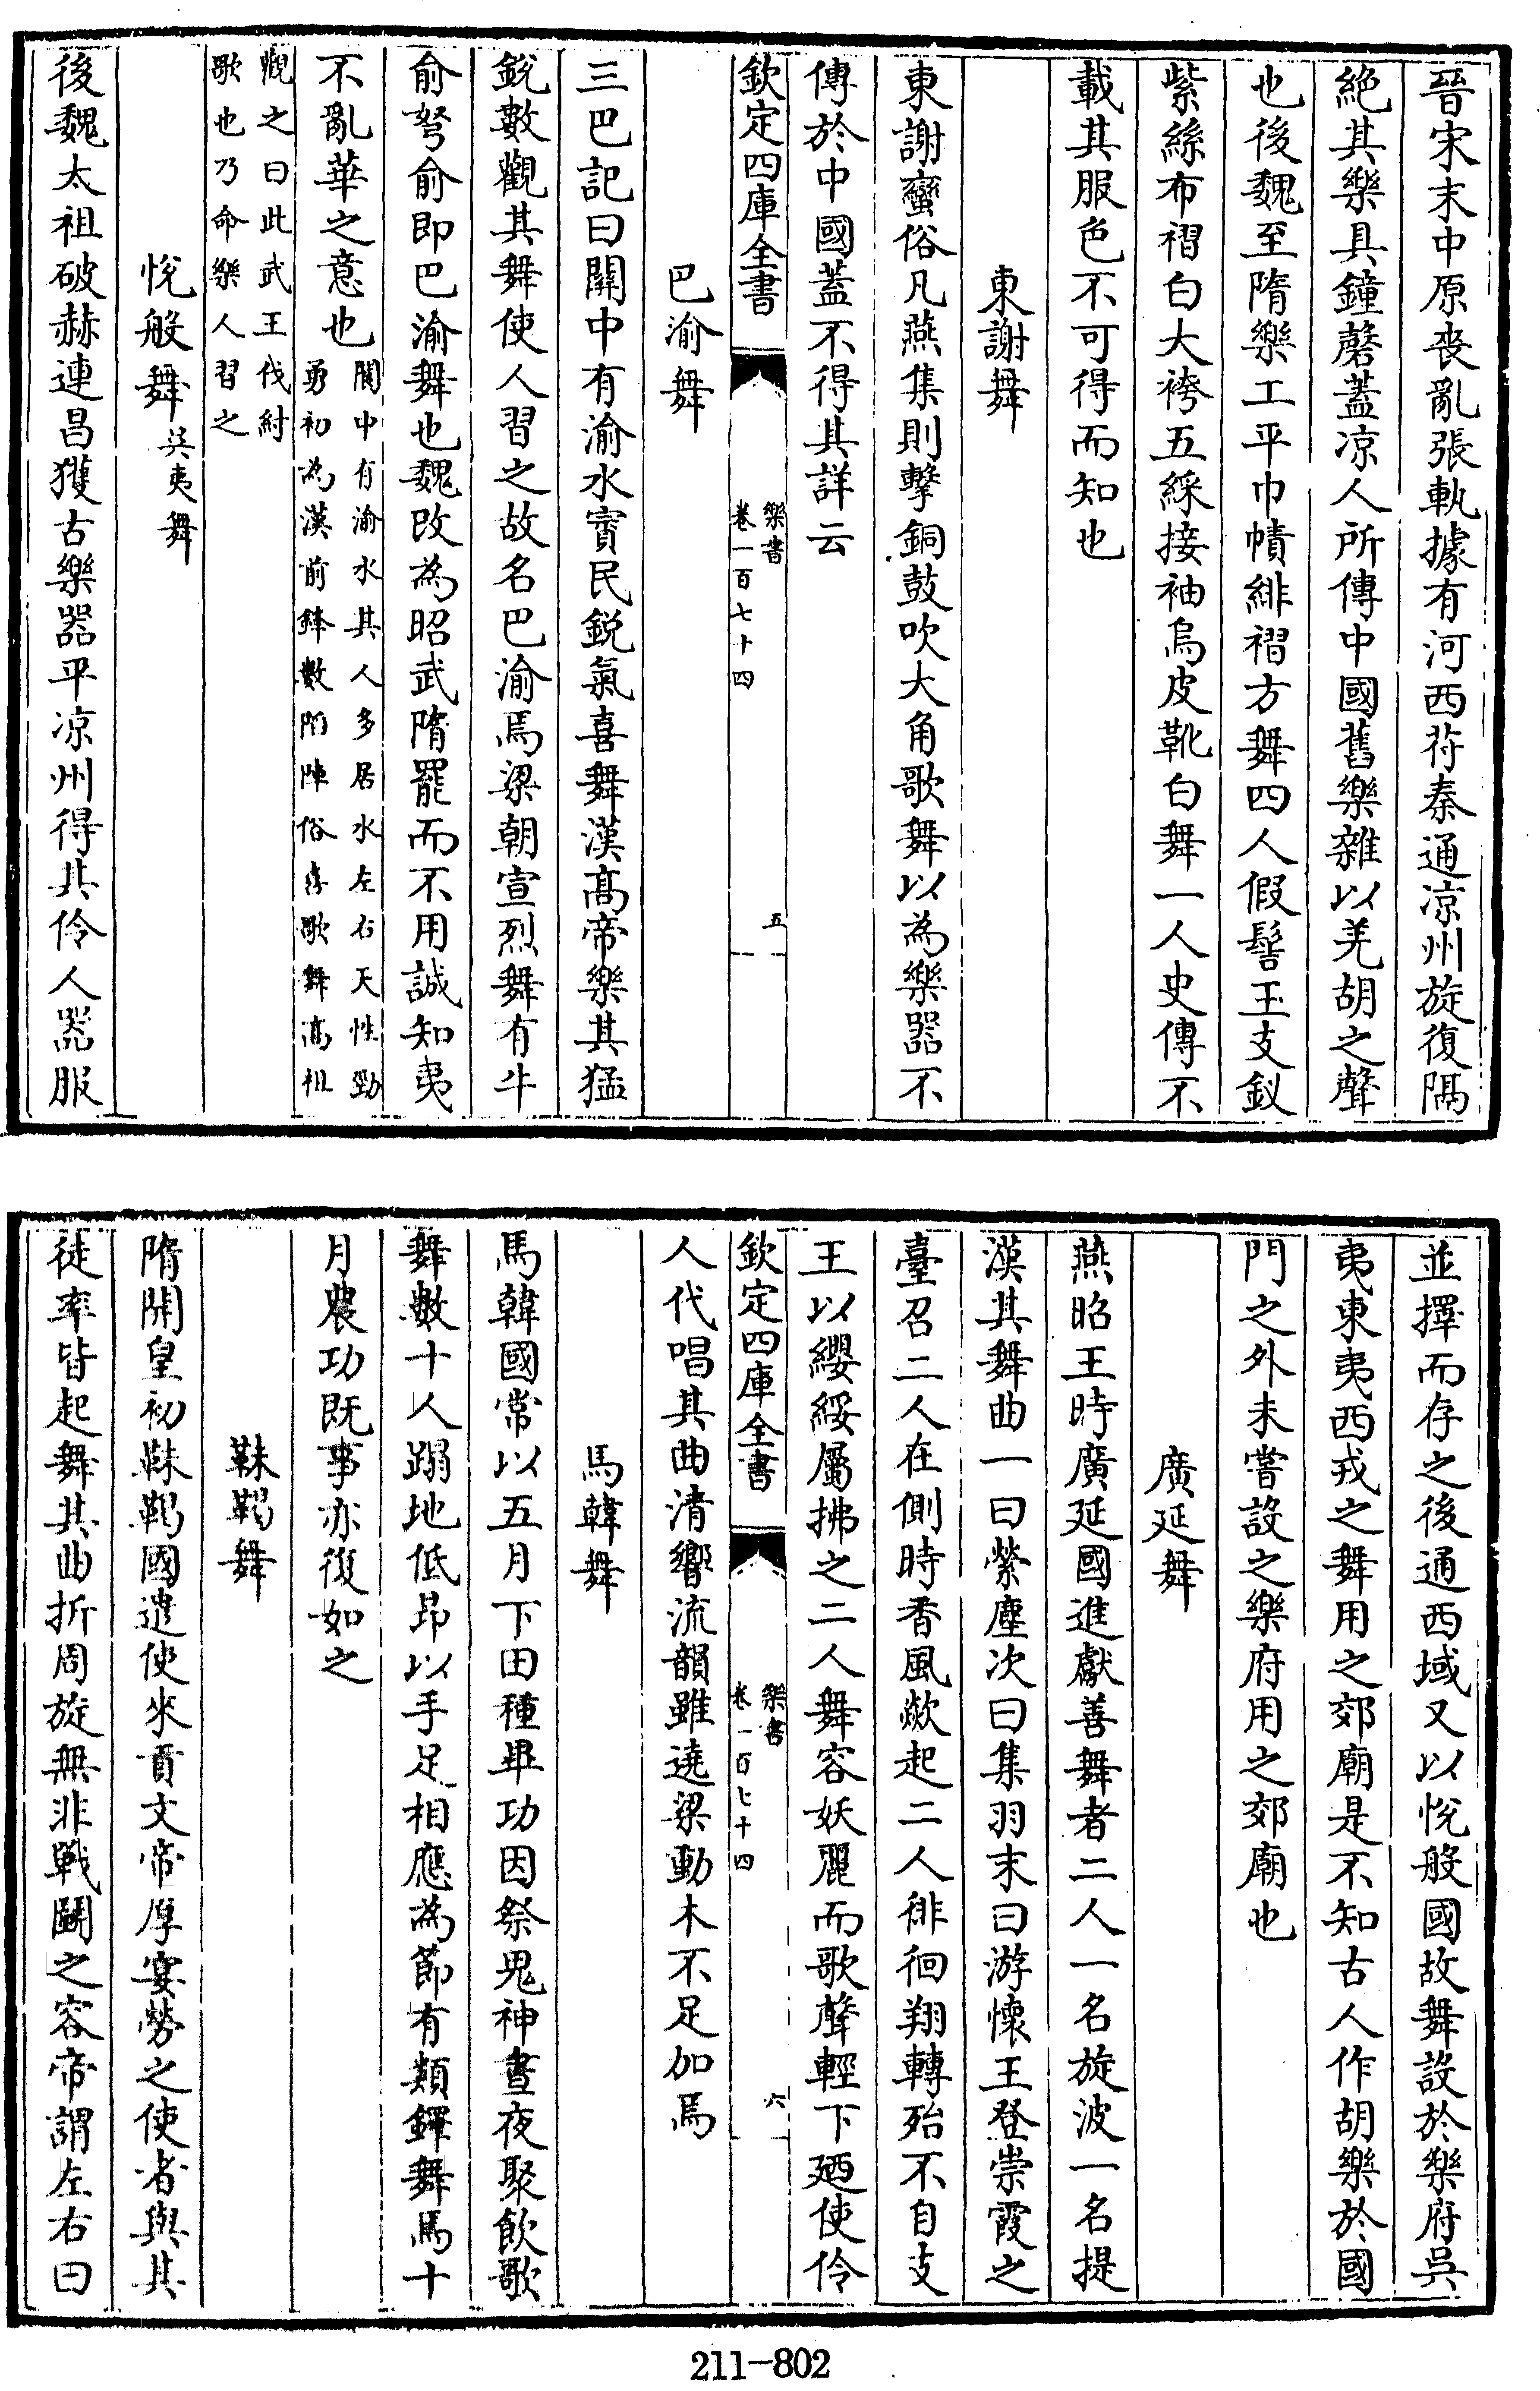 晉宋末中原喪亂張軌據有河西苻秦通凉州旋復隔
絶其樂具鐘磬蓋凉人所傳中國舊樂雜以羌胡之聲
也後魏至隋樂工平巾幘緋褶方舞四人假髻玉支釵
紫絲布褶白大袴五綵接袖烏皮靴白舞一人史傳不
載其服色不可得而知也
東謝舞
東謝蠻俗凡燕集則擊銅鼓吹大角歌舞以為樂器不
傳於中國蓋不得其詳云
欽定四庫全書
樂書
卷一百七十四
五
巴渝舞
三巴記曰闗中有渝水賨民鋭氣喜舞漢髙帝樂其猛
鋭數觀其舞使人習之故名巴渝焉梁朝宣烈舞有牛
俞弩俞即巴渝舞也魏改為昭武隋罷而不用誠知夷
不亂華之意也
闗中有渝水其人多居水左右天性勁
勇初為漢前鋒數陷陣俗喜歌舞髙祖
觀之曰此武王伐紂
歌也乃命樂人習之
悅般舞
吳夷舞
後魏太祖破赫連昌獲古樂器平凉州得其伶人器服
並擇而存之後通西域又以悅般國故舞設於樂府吳
夷東夷西戎之舞用之郊廟是不知古人作胡樂於國
門之外未嘗設之樂府用之郊廟也
廣延舞
燕昭王時廣延國進獻善舞者二人一名旋波一名提
漠其舞曲一曰縈塵次曰集羽末曰游懷王登崇霞之
臺召二人在側時香風歘起二人徘徊翔轉殆不自支
王以纓綏屬拂之二人舞容妖麗而歌聲輕下廼使伶
欽定四庫全書
樂書
卷一百七十四
六
人代唱其曲清響流韻雖遶梁動木不足加焉
馬韓舞
馬韓國常以五月下田種畢功因祭鬼神晝夜聚飲歌
舞數十人蹋地低昂以手足相應為節有類鐸舞焉十
月農功既事亦復如之
靺鞨舞
隋開皇初靺鞨國遣使來貢文帝厚宴勞之使者與其
徒率皆起舞其曲折周旋無非戰鬭之容帝謂左右曰
211-802